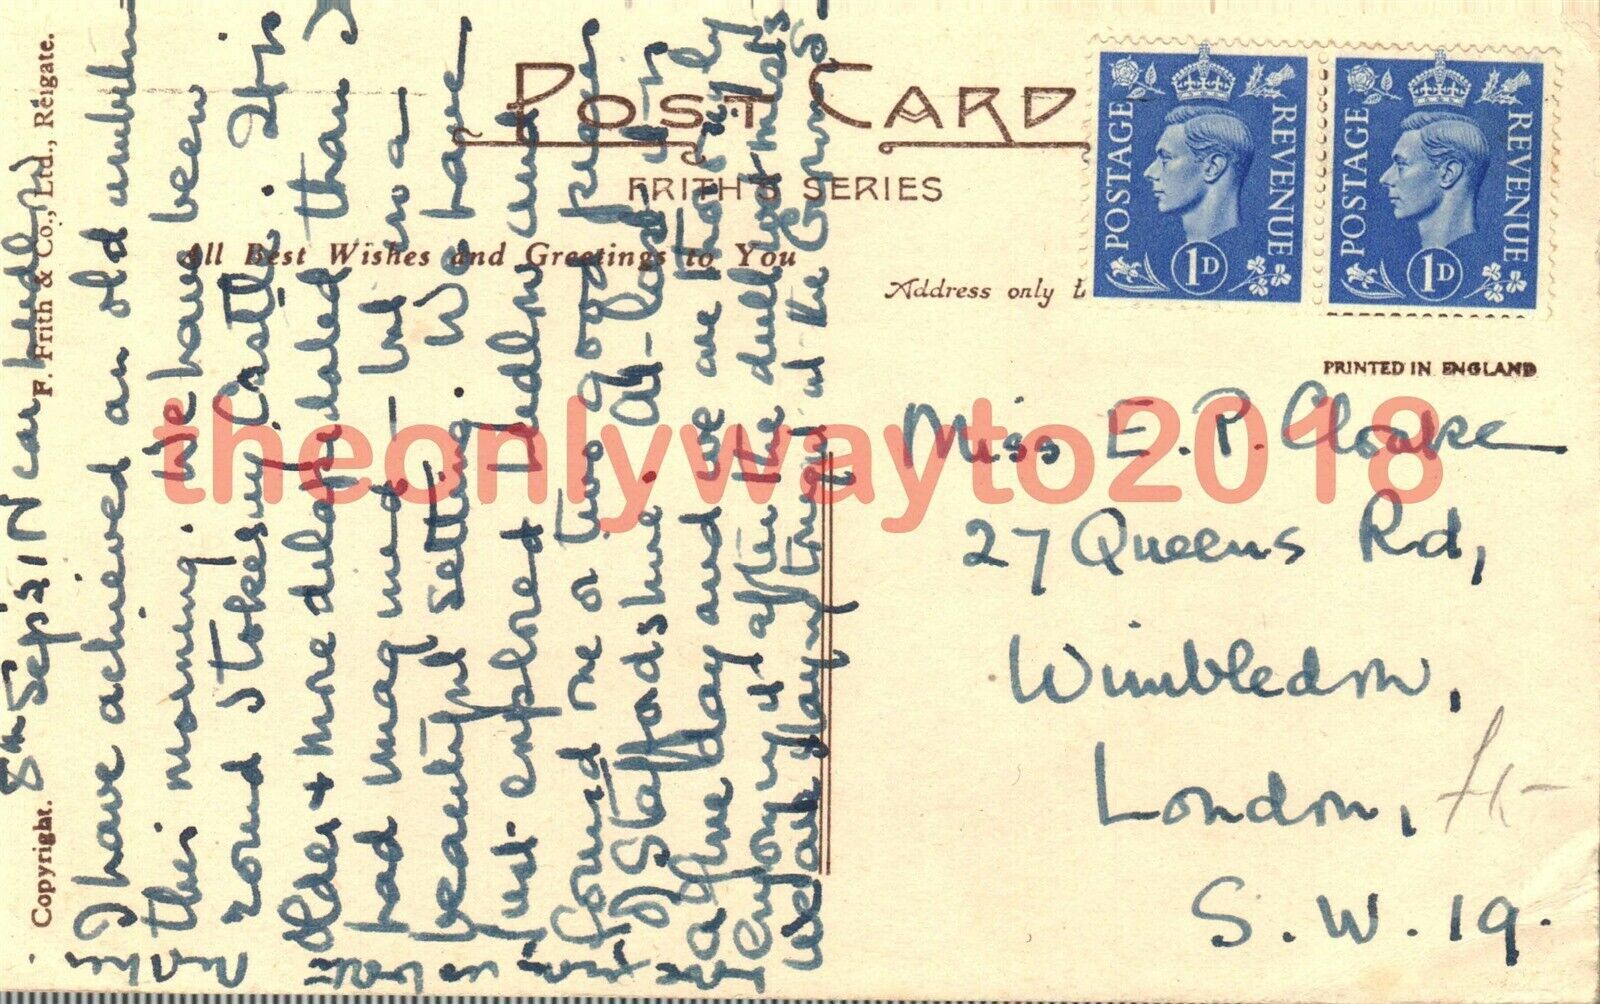 POST CARD
FRITH'S SERIES
All Best Wishes and Greetings to You
Address only
POSTAGE REVENUE
1D
POSTAGE REVENUE
1D
PRINTED IN ENGLAND
Copyright.
F. Frith & Co., Ltd., Reigate.
8th Sep: near Ludlow
I have achieved an old
this morning. We have been
round Stokesay Castle. It is
older & more delapidated than I
had imagined - but in a
beautiful setting. We have
just explored Ludlow and
found one or two good pieces
Staffordshire. At last it is
a fine day and we are thoroughly
enjoying it after the dull
We are staying tonight at the
Miss E. P. Cloake
27 Queens Rd,
Wimbledon,
London,
S.W.19.
theonlywayto2018